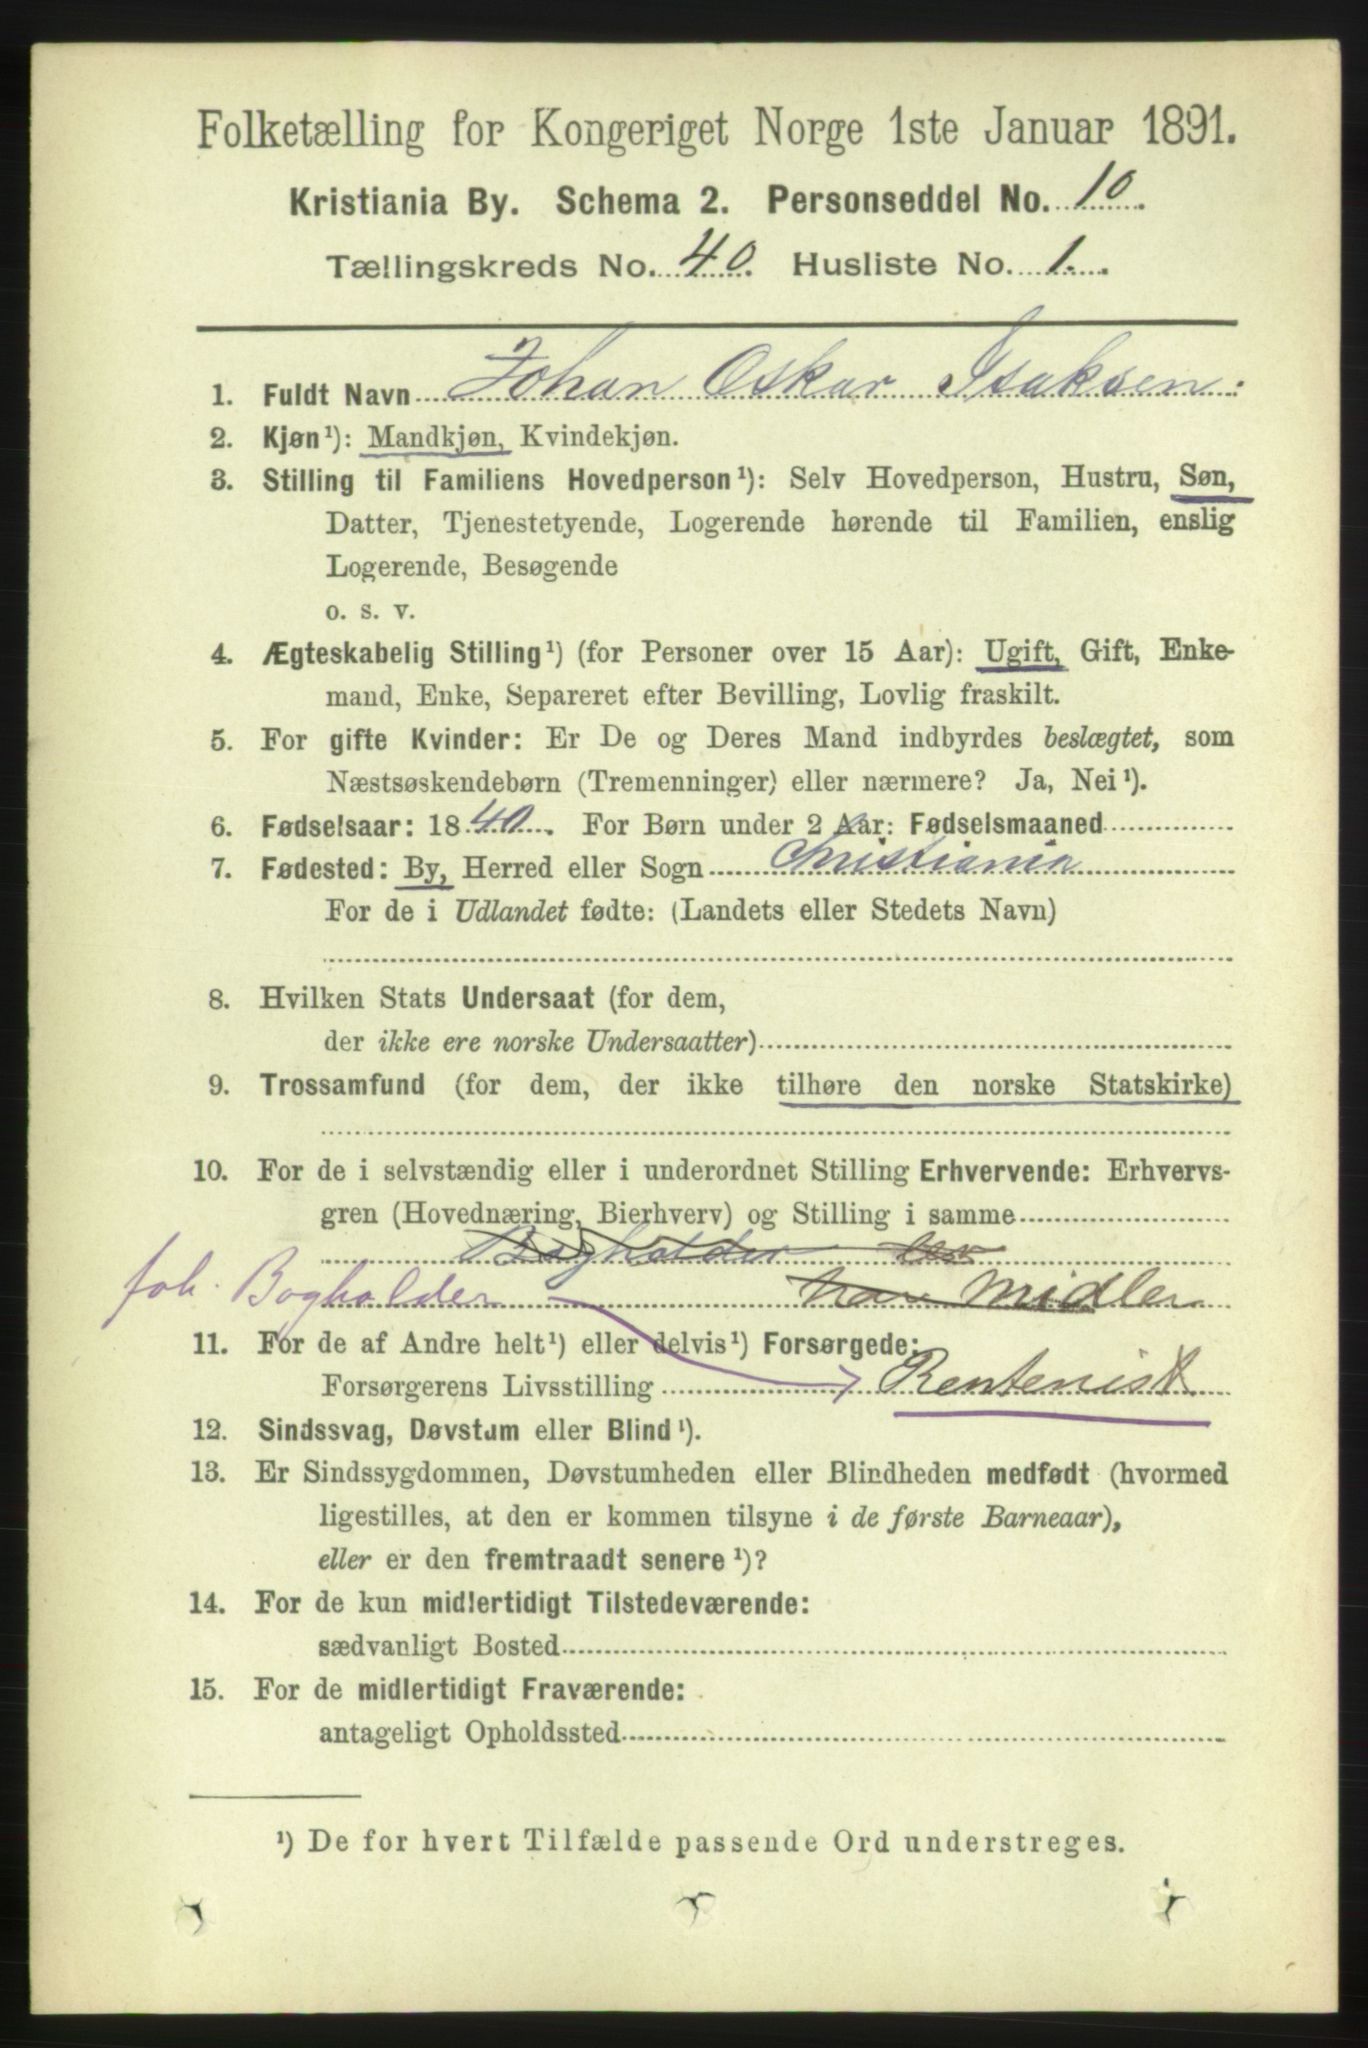 Folketælling for Kongeriget Norge 1ste Januar 1891.
Kristiania By. Schema 2. Personseddel No. 10.
Tællingskreds No. 40. Husliste No. 1.
1. Fuldt Navn Johan Oskar Isaksen.
2. Kjøn¹): Mandkjøn, Kvindekjøn.
3. Stilling til Familiens Hovedperson¹): Selv Hovedperson, Hustru, Søn,
Datter, Tjenestetyende, Logerende hørende til Familien, enslig
Logerende, Besøgende
o. s. v.
4. Ægteskabelig Stilling¹) (for Personer over 15 Aar): Ugift, Gift, Enke-
mand, Enke, Separeret efter Bevilling, Lovlig fraskilt.
5. For gifte Kvinder: Er De og Deres Mand indbyrdes beslægtet, som
Næstsøskendebørn (Tremenninger) eller nærmere? Ja, Nei¹).
6. Fødselsaar: 1840. For Børn under 2 Aar: Fødselsmaaned
7. Fødested: By, Herred eller Sogn Christiania
For de i Udlandet fødte: (Landets eller Stedets Navn)
8. Hvilken Stats Undersaat (for dem,
der ikke ere norske Undersaatter)
9. Trossamfund (for dem, der ikke tilhøre den norske Statskirke)
10. For de i selvstændig eller i underordnet Stilling Erhvervende: Erhvervs-
gren (Hovednæring, Bierhverv) og Stilling i samme
Bogholder
foh. Bogholder har Midler
11. For de af Andre helt¹) eller delvis¹) Forsørgede:
Forsørgerens Livsstilling Rentenist
12. Sindssvag, Døvstum eller Blind¹).
13. Er Sindssygdommen, Døvstumheden eller Blindheden medfødt (hvormed
ligestilles, at den er kommen tilsyne i de første Barneaar),
eller er den fremtraadt senere¹)?
14. For de kun midlertidigt Tilstedeværende:
sædvanligt Bosted
15. For de midlertidigt Fraværende:
antageligt Opholdssted
¹) De for hvert Tilfælde passende Ord understreges.